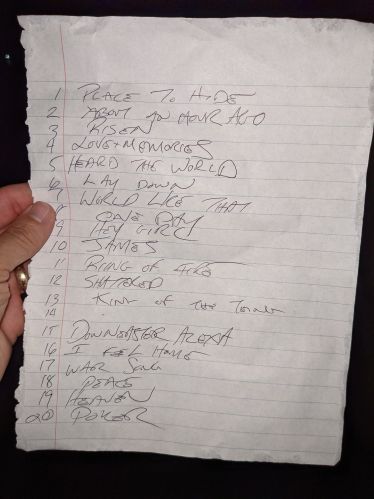 1 PLACE TO HIDE
2 ABOUT AN HOUR AGO
3 RISEN
4 LOVE+MEMORIES
5 HEARD THE WORLD
6 LAY DOWN
7 WORLD LIKE THAT
8 ONE DAY
9 HEY GIRL
10 JAMES
11 RING OF FIRE
12 SHATTERED
13 KING OF THE THING
14
15 DOWNEASTER ALEXA
16 I FEEL HOME
17 WAR SONG
18 PEACE
19 HEAVEN
20 POKER